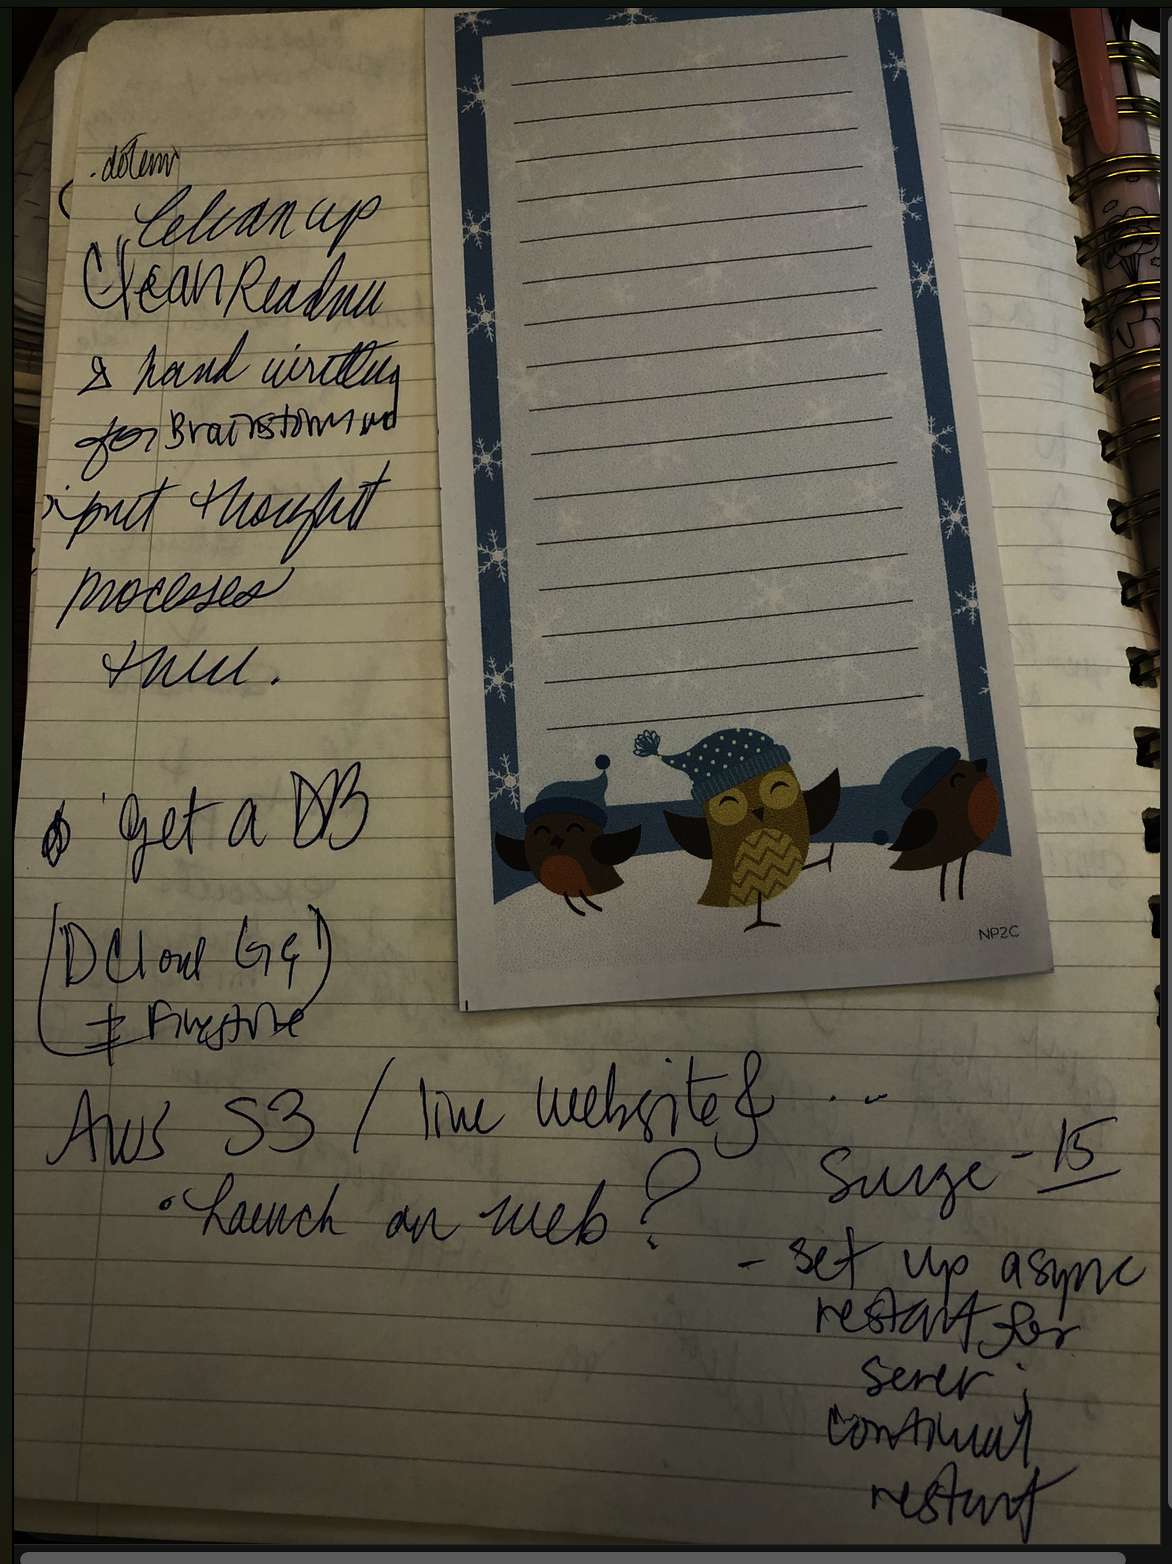 .dotenv
Clean up
Clean Readme
& hand writting
for Brainstorm
input thought
processes
get a DB
Firestore
AWS S3 / live website & ...
Surge - 15
• Launch on web?
- set up async
restart for
serer ;
continual
restart
NP2C